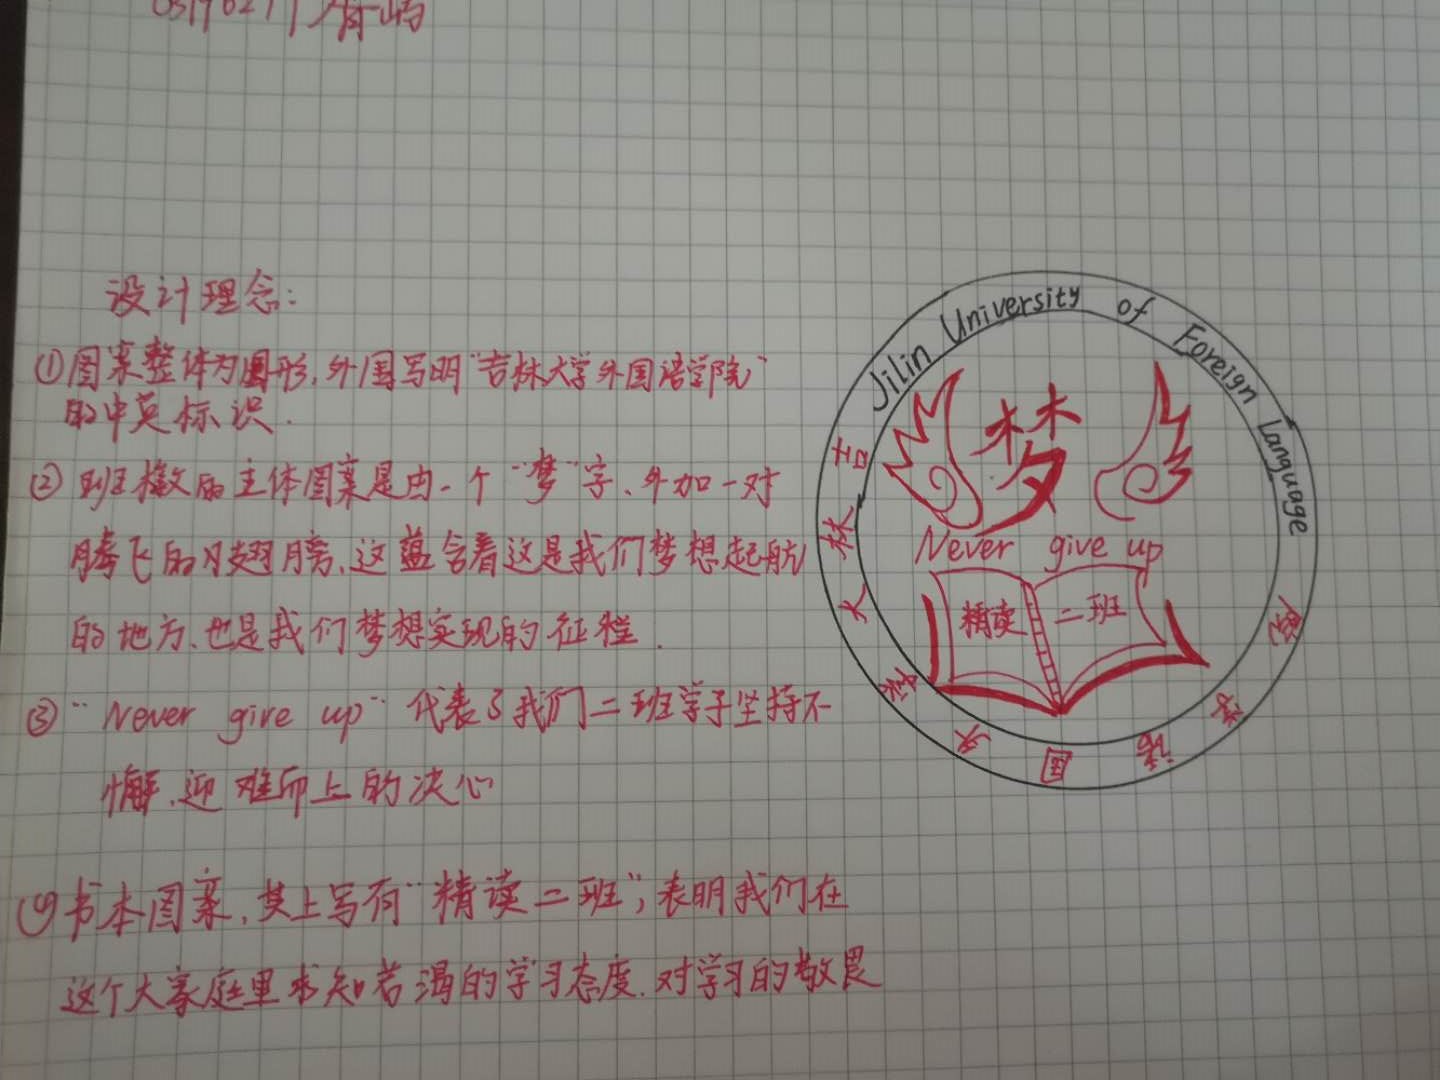 设计理念:
①图案整体为圆形,外围写明“吉林大学外国语学院”
的中英标识.
②班徽的主体图案是由一个“梦”字、外加一对
腾飞的翅膀,这蕴含着这是我们梦想起航
的地方,也是我们梦想实现的征程.
③“Never give up”代表了我们二班学子坚持不
懈,迎难而上的决心
(4)书本图案,其上写有“精读二班”,表明我们在
这个大家庭里求知若渴的学习态度.对学习的敬畏
Jilin University of Foreign Language
吉林大学外国语学院
梦
Never give up
精读 二班